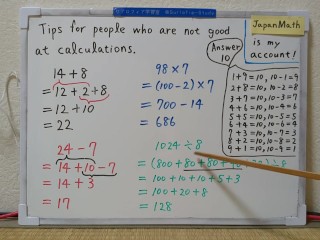 Tips for people who are not good
at calculations.
JapanMath
is my
account!
Answer
10
14 + 8
= 12 + 2 + 8
= 12 + 10
= 22
98 × 7
= (100 - 2) × 7
= 700 - 14
= 686
24 - 7
= 14 + 10 - 7
= 14 + 3
= 17
1024 ÷ 8
= (800 + 80 + 80 +
= 100 + 10 + 10 + 5 + 3
= 100 + 20 + 8
= 128
1 + 9 = 10, 10 - 1 = 9
2 + 8 = 10, 10 - 2 = 8
3 + 7 = 10, 10 - 3 = 7
4 + 6 = 10, 10 - 4 = 6
5 + 5 = 10, 10 - 5 = 5
6 + 4 = 10, 10 - 6 = 4
7 + 3 = 10, 10 - 7 = 3
8 + 2 = 10, 10 - 8 = 2
9 + 1 = 10, 10 - 9 = 1